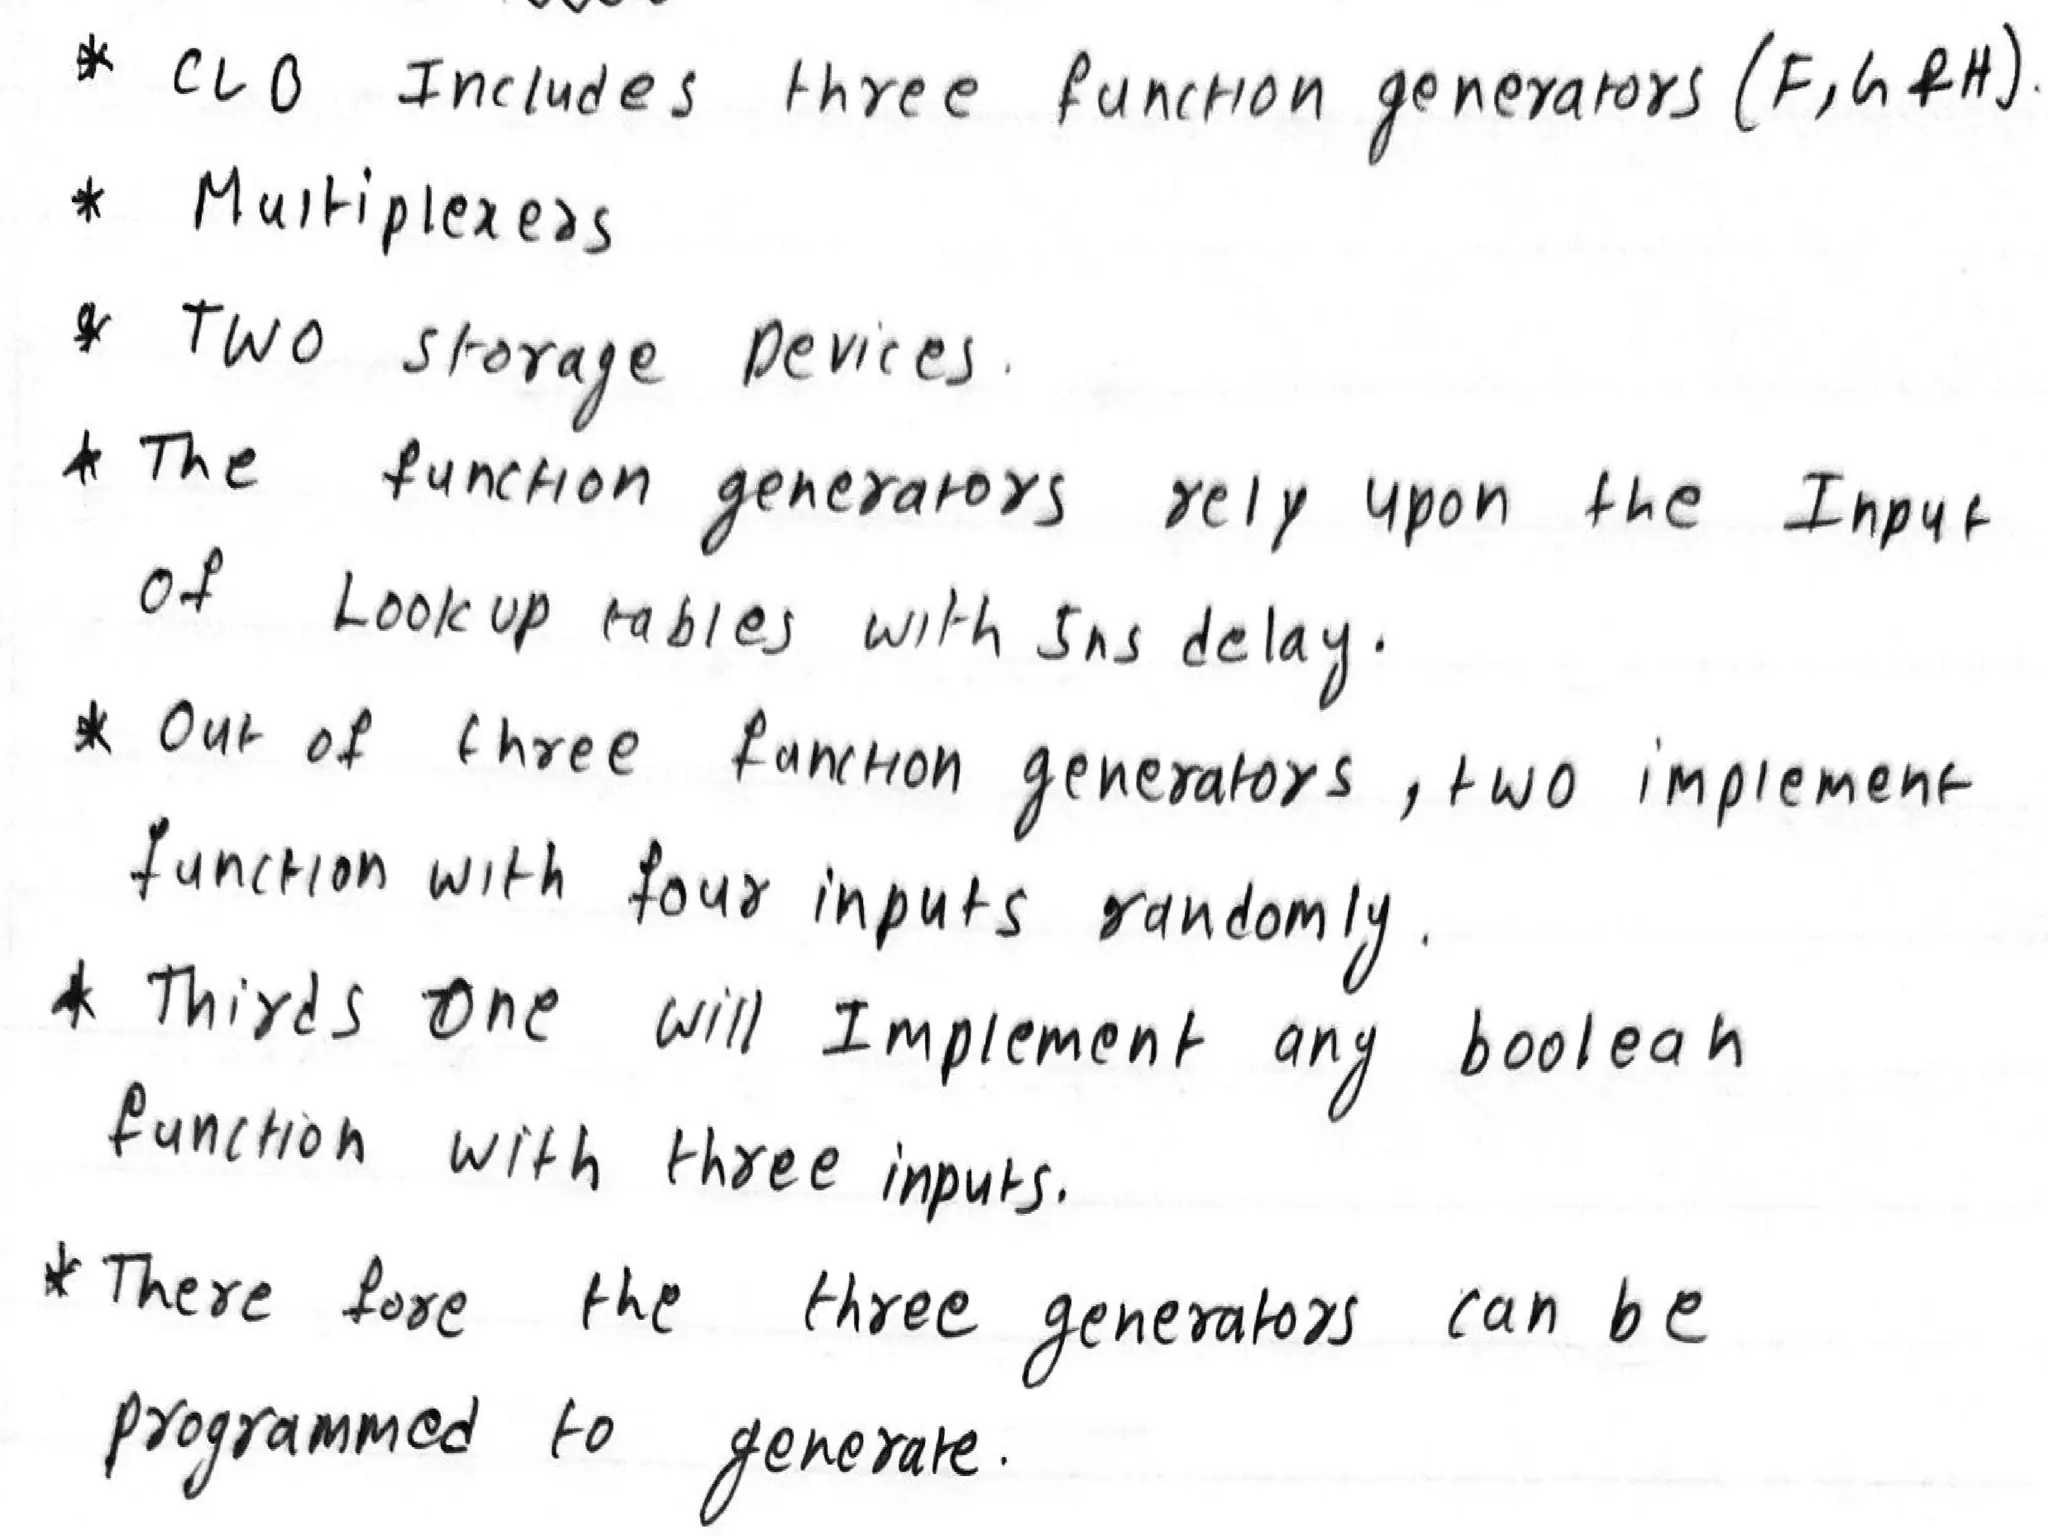 * CLB Includes three function generators (F, G & H).
* Multiplexers
* Two storage Devices.
* The function generators rely upon the Input
of Look up tables with 5ns delay.
* Out of three function generators, two implement
function with four inputs randomly.
* Thirds One will Implement any boolean
function with three inputs.
* There fore the three generators can be
programmed to generate.